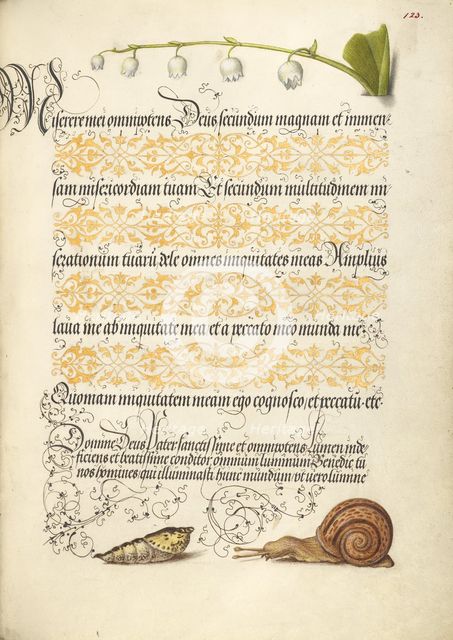 123.
Miserere mei omnipotens Deus secundum magnam et immen-
sam misericordiam tuam Et secundum multitudinem mi
serationum tuarũ dele omnes iniquitates meas Amplius
laua me ab iniquitate mea et a peccato meo munda me
Quoniam iniquitatem meam ego cognosco, et peccatũ etc
Domine Deus Pater sanctissime et omnipotens Lumen inde
ficiens et beatissime conditor omnium luminum Benedic tu
nos homines, qui illuminasti hunc mundum vt vero lumine